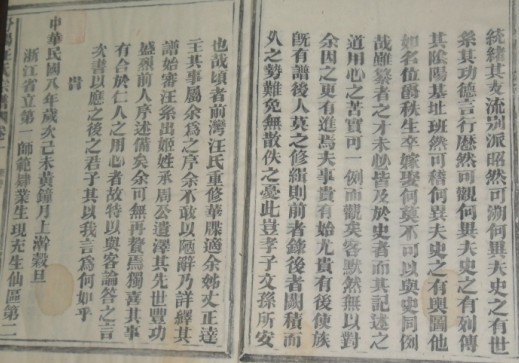 統緒其支流別派昭然可溯何異夫史之有世
系其功德言行歷然可觀何異夫史之有列傳
其陰陽基址班然可稽何異夫史之有輿圖他
如名位爵秩生卒嫁娶何莫不可以與史同例
哉雖纂者之才未必皆及於史者而其記述之
道用心之苦實可一例而觀矣客默然無以對
余因之更有進焉夫事貴有始尤貴有後使族
既有譜後人莫之修緝則前者錄後者闕積而
久之勢難免無散佚之憂此豈孝子文孫所安
也哉頃者前灣汪氏重修華牒適余姊丈正逵
主其事屬余為之序余不敢以陋辭乃詳繹其
譜始審汪系出姬姓承周公遺澤其先世豐功
盛烈前人序述備矣余可無再贅焉獨喜其事
有合於仁人之用心者故特以與客論答之言
次書以應之後之君子其以我言為何如乎
旹
中華民國八年歲次己未黃鐘月上澣穀旦
浙江省立第一師範肄業生現充生仙區第二